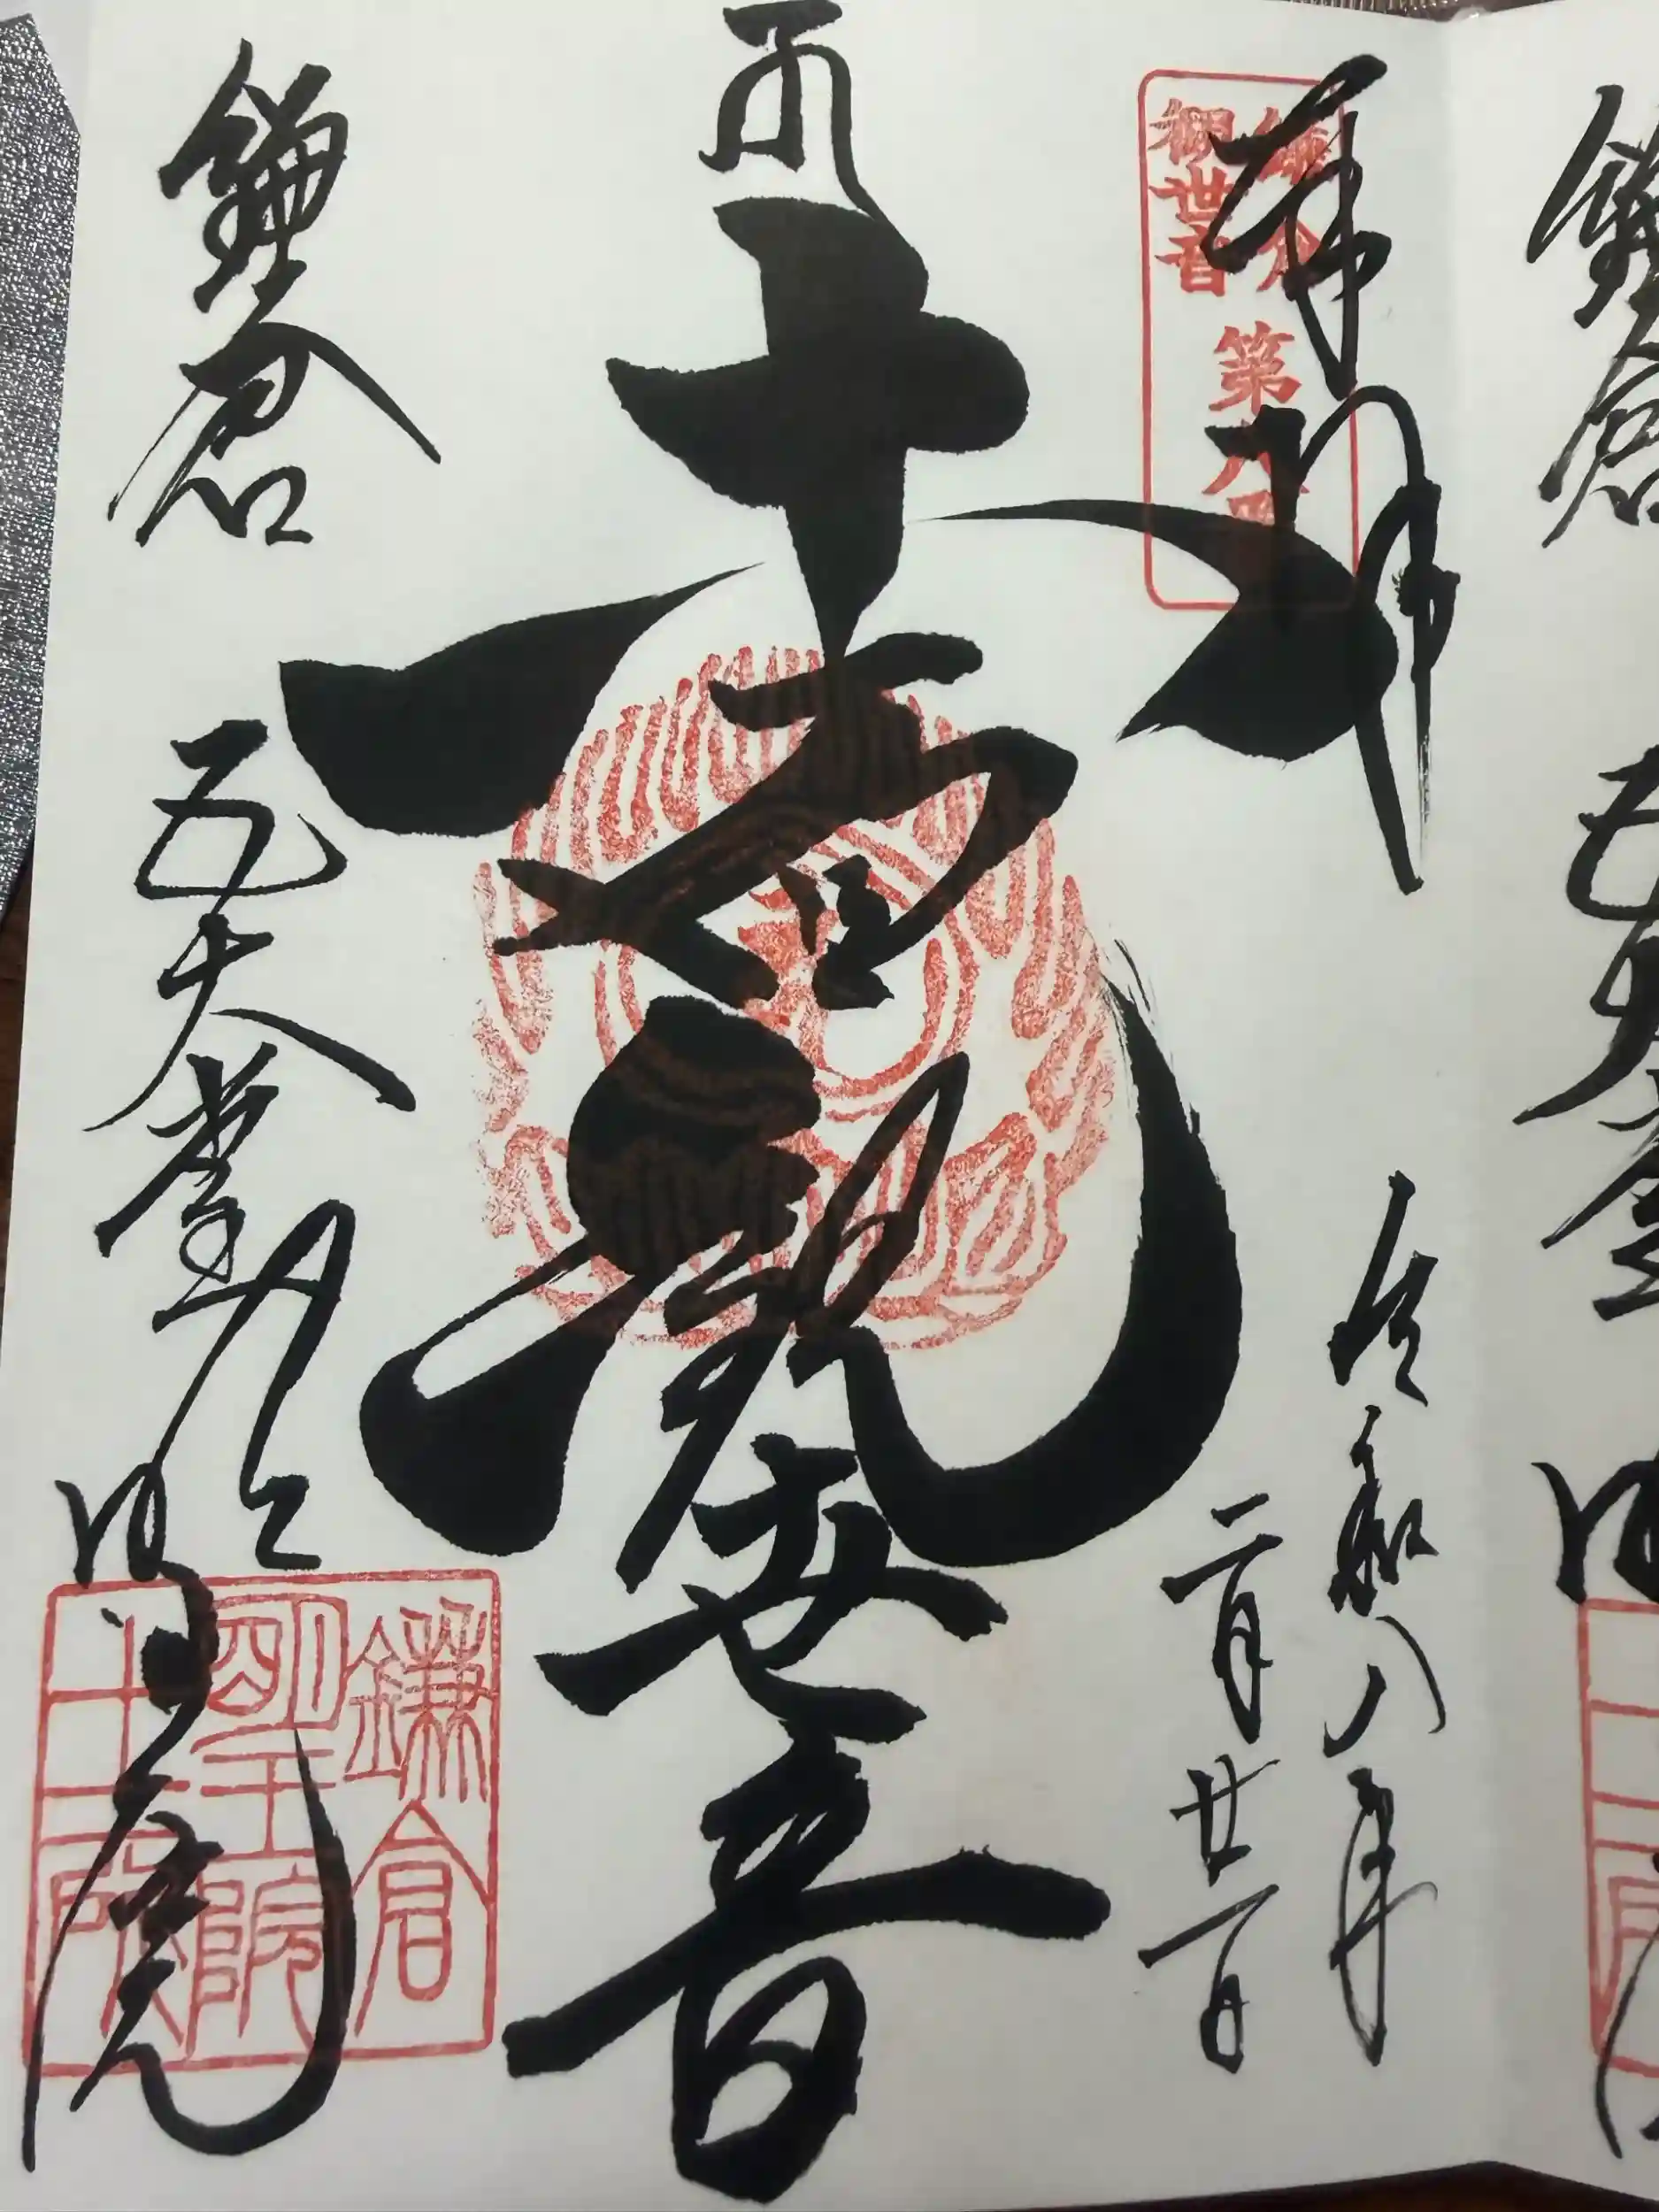 鎌倉
五大堂
奉拝
鎌倉
観世音
第八番
令和八年
二月廿一日
十一面観世音
鎌倉
五大堂
明王院
鎌倉
明王院
十二所